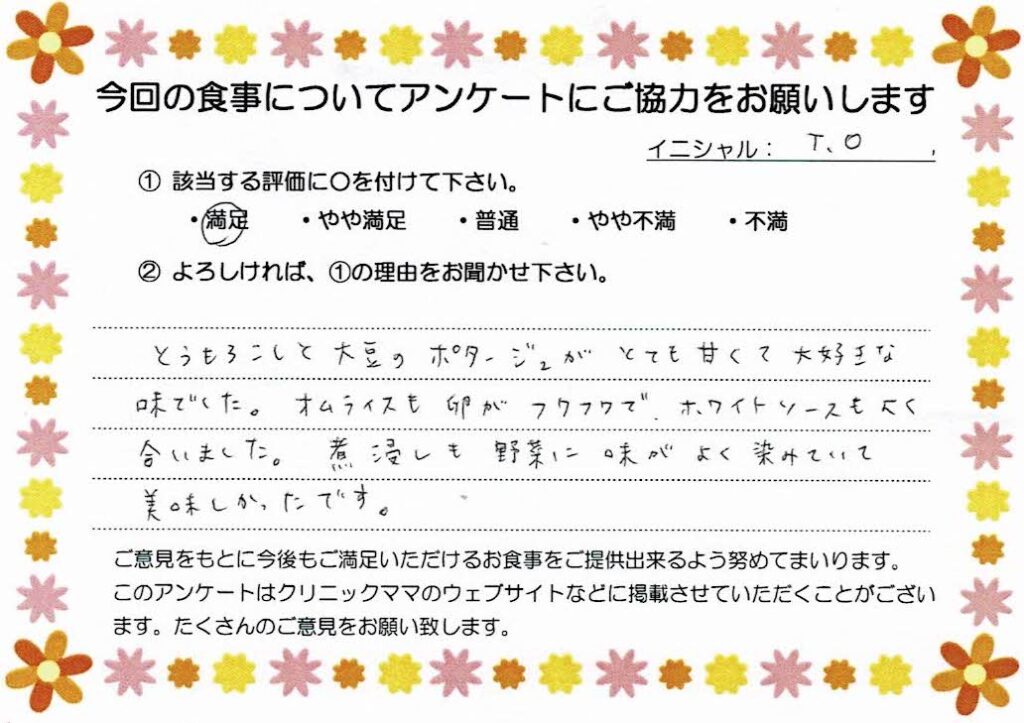 今回の食事についてアンケートにご協力をお願いします
イニシャル： T.O
① 該当する評価に〇を付けて下さい。
・満足 ・やや満足 ・普通 ・やや不満 ・不満
② よろしければ、①の理由をお聞かせ下さい。
とうもろこしと大豆のポタージュがとても甘くて大好きな
味でした。オムライスも卵がフワフワで、ホワイトソースもよく
合いました。煮浸しも野菜に味がよく染みていて
美味しかったです。
ご意見をもとに今後もご満足いただけるお食事をご提供出来るよう努めてまいります。
このアンケートはクリニックママのウェブサイトなどに掲載させていただくことがござい
ます。たくさんのご意見をお願い致します。